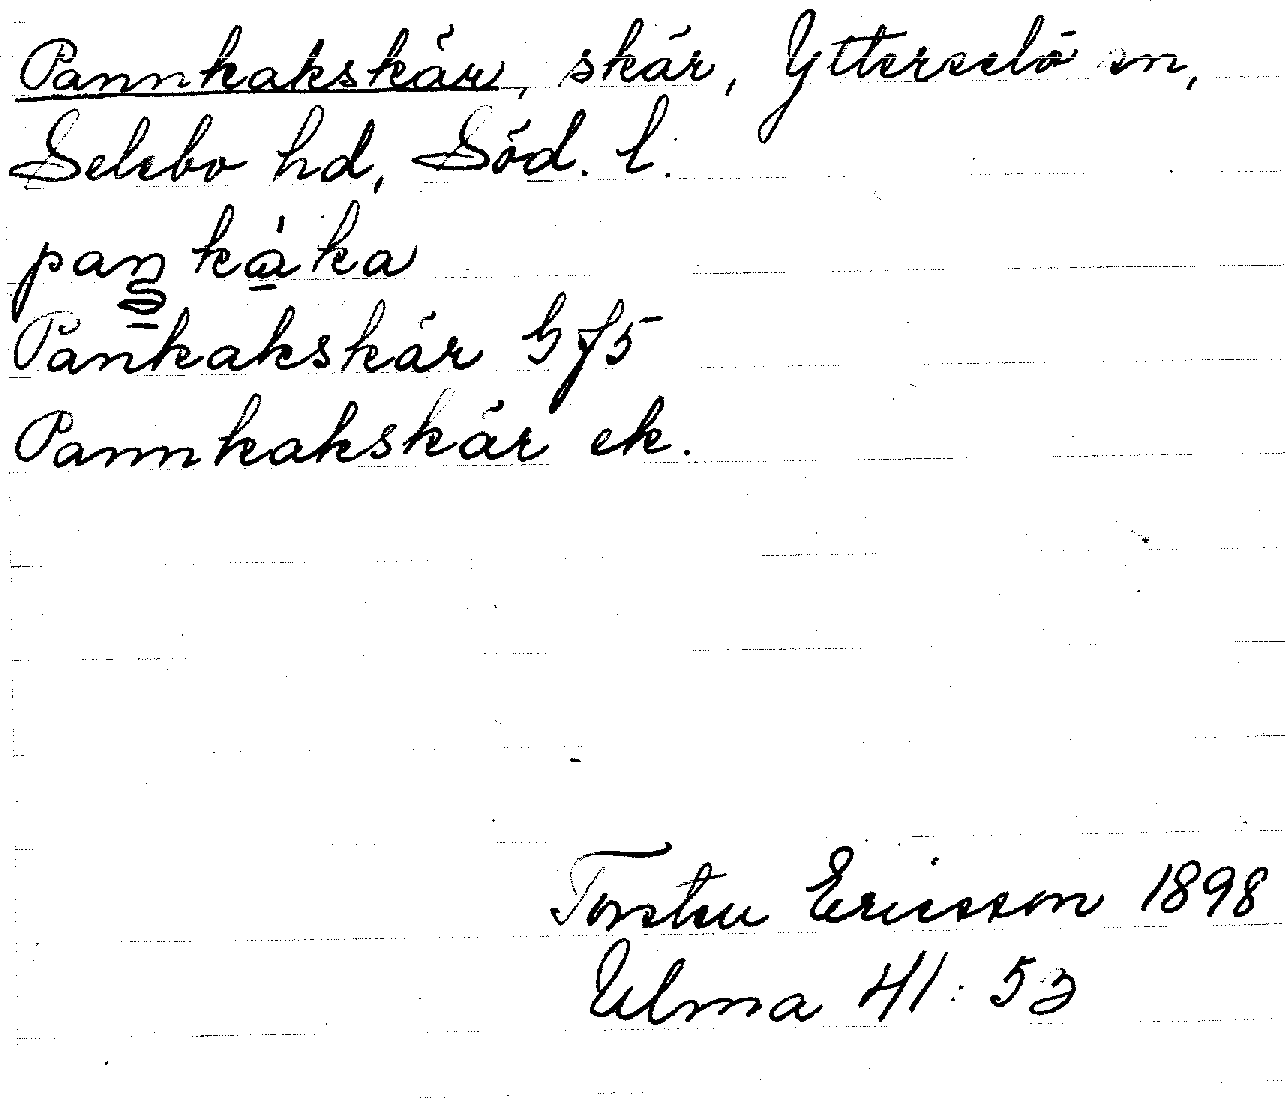 Pannkakskär, skär, Ytterselö sn,
Selebo hd, Söd. l.
pankàka
Pankakskär G f5
Pannkakskär ek.
Torsten Ericsson 1898
Ulma 41:53